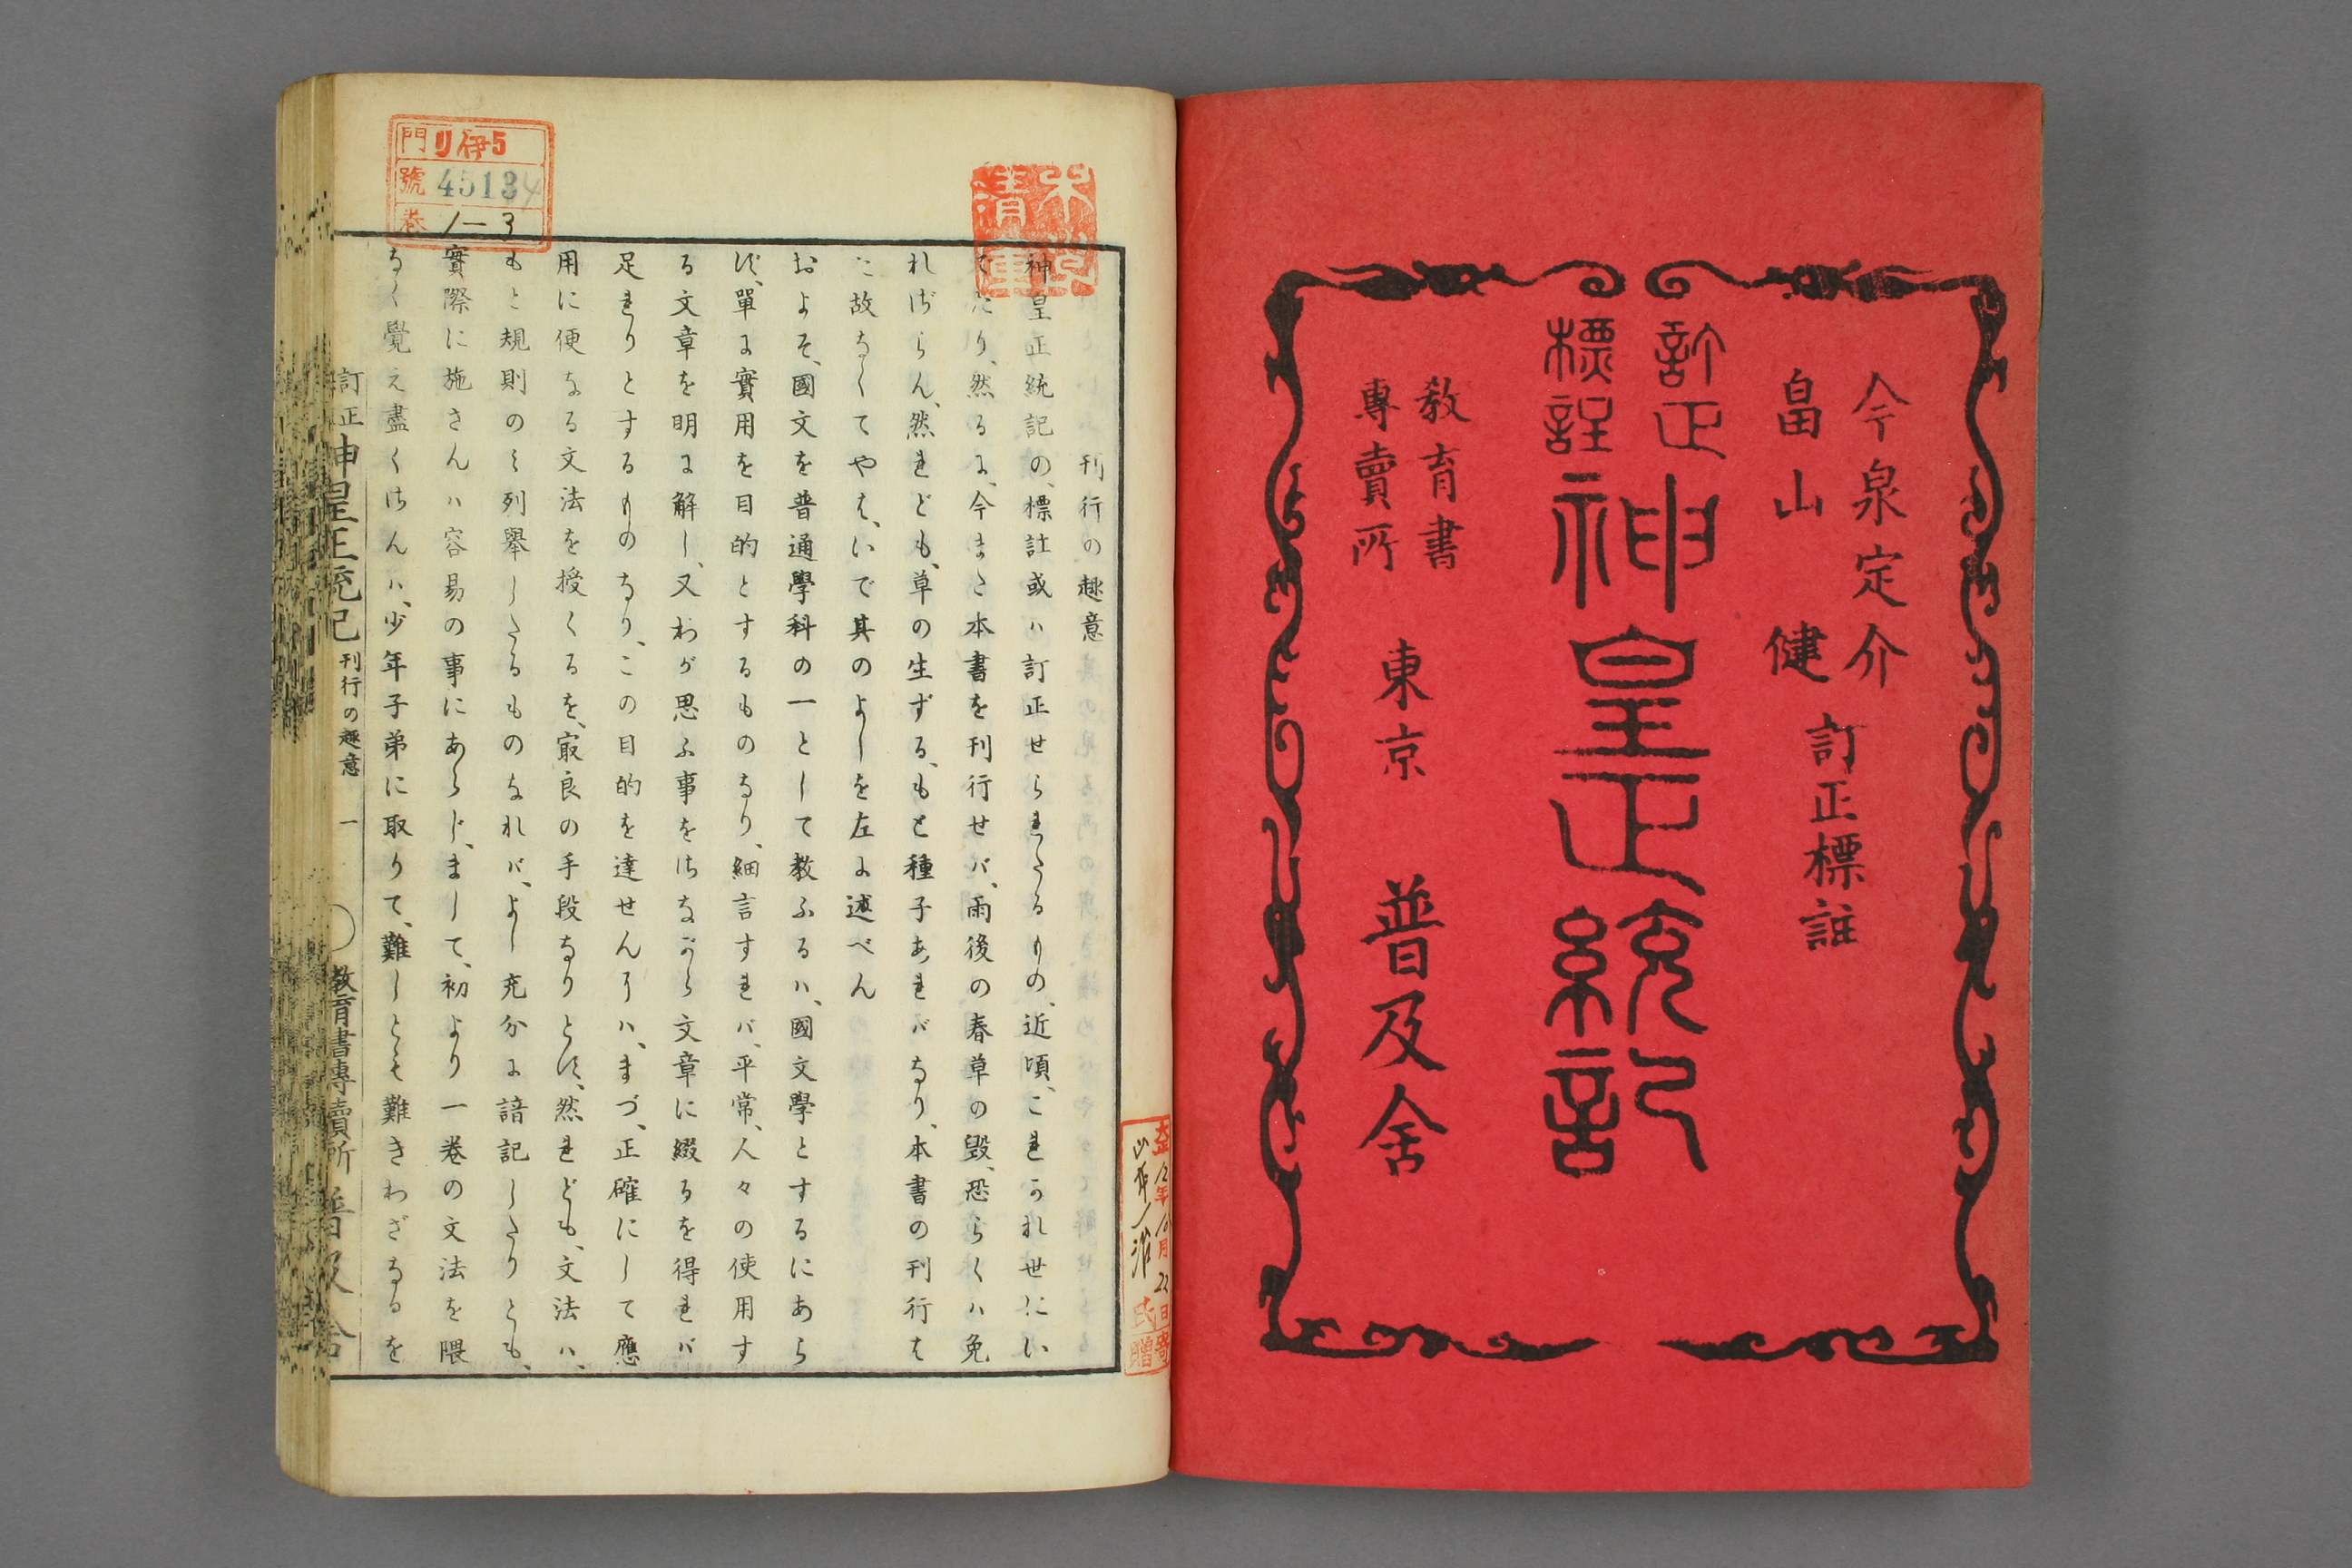 今泉定介
畠山健
訂正標註
訂正
標註
神皇正統記
教育書
專賣所
東京
普及舍
門 リ伊5
號 45134
卷 1—3
大正12年10月22日寄
氏贈
刊行の趣意
神皇正統記の、標註或ハ訂正せられたるもの、近頃、これかれ世にい
でたり、然るに、今また本書を刊行せバ、雨後の春草の毀、恐らくハ免
れざらん、然れども、草の生ずる、もと種子あれバなり、本書の刊行も
た故なくてやは、いで其のよしを左に述べん
およそ、國文を普通學科の一として教ふるハ、國文學とするにあら
ず、單に實用を目的とするものなり、細言すれバ、平常、人々の使用す
る文章を明に解し、又わが思ふ事をさながら文章に綴るを得れバ
足れりとするものなり、この目的を達せんにハ、まづ、正確にして應
用に便なる文法を授くるを、最良の手段なりとす、然れども、文法ハ、
もと規則のミ列擧したるものなれバ、よし充分に諳記したりとも、
實際に施さんハ容易の事にあらじ、まして、初より一卷の文法を隈
なく覺え盡くさんハ、少年子弟に取りて、難しとも難きわざなるを
訂正 神皇正統記 刊行の趣意 一 教育書專賣所 普及舍